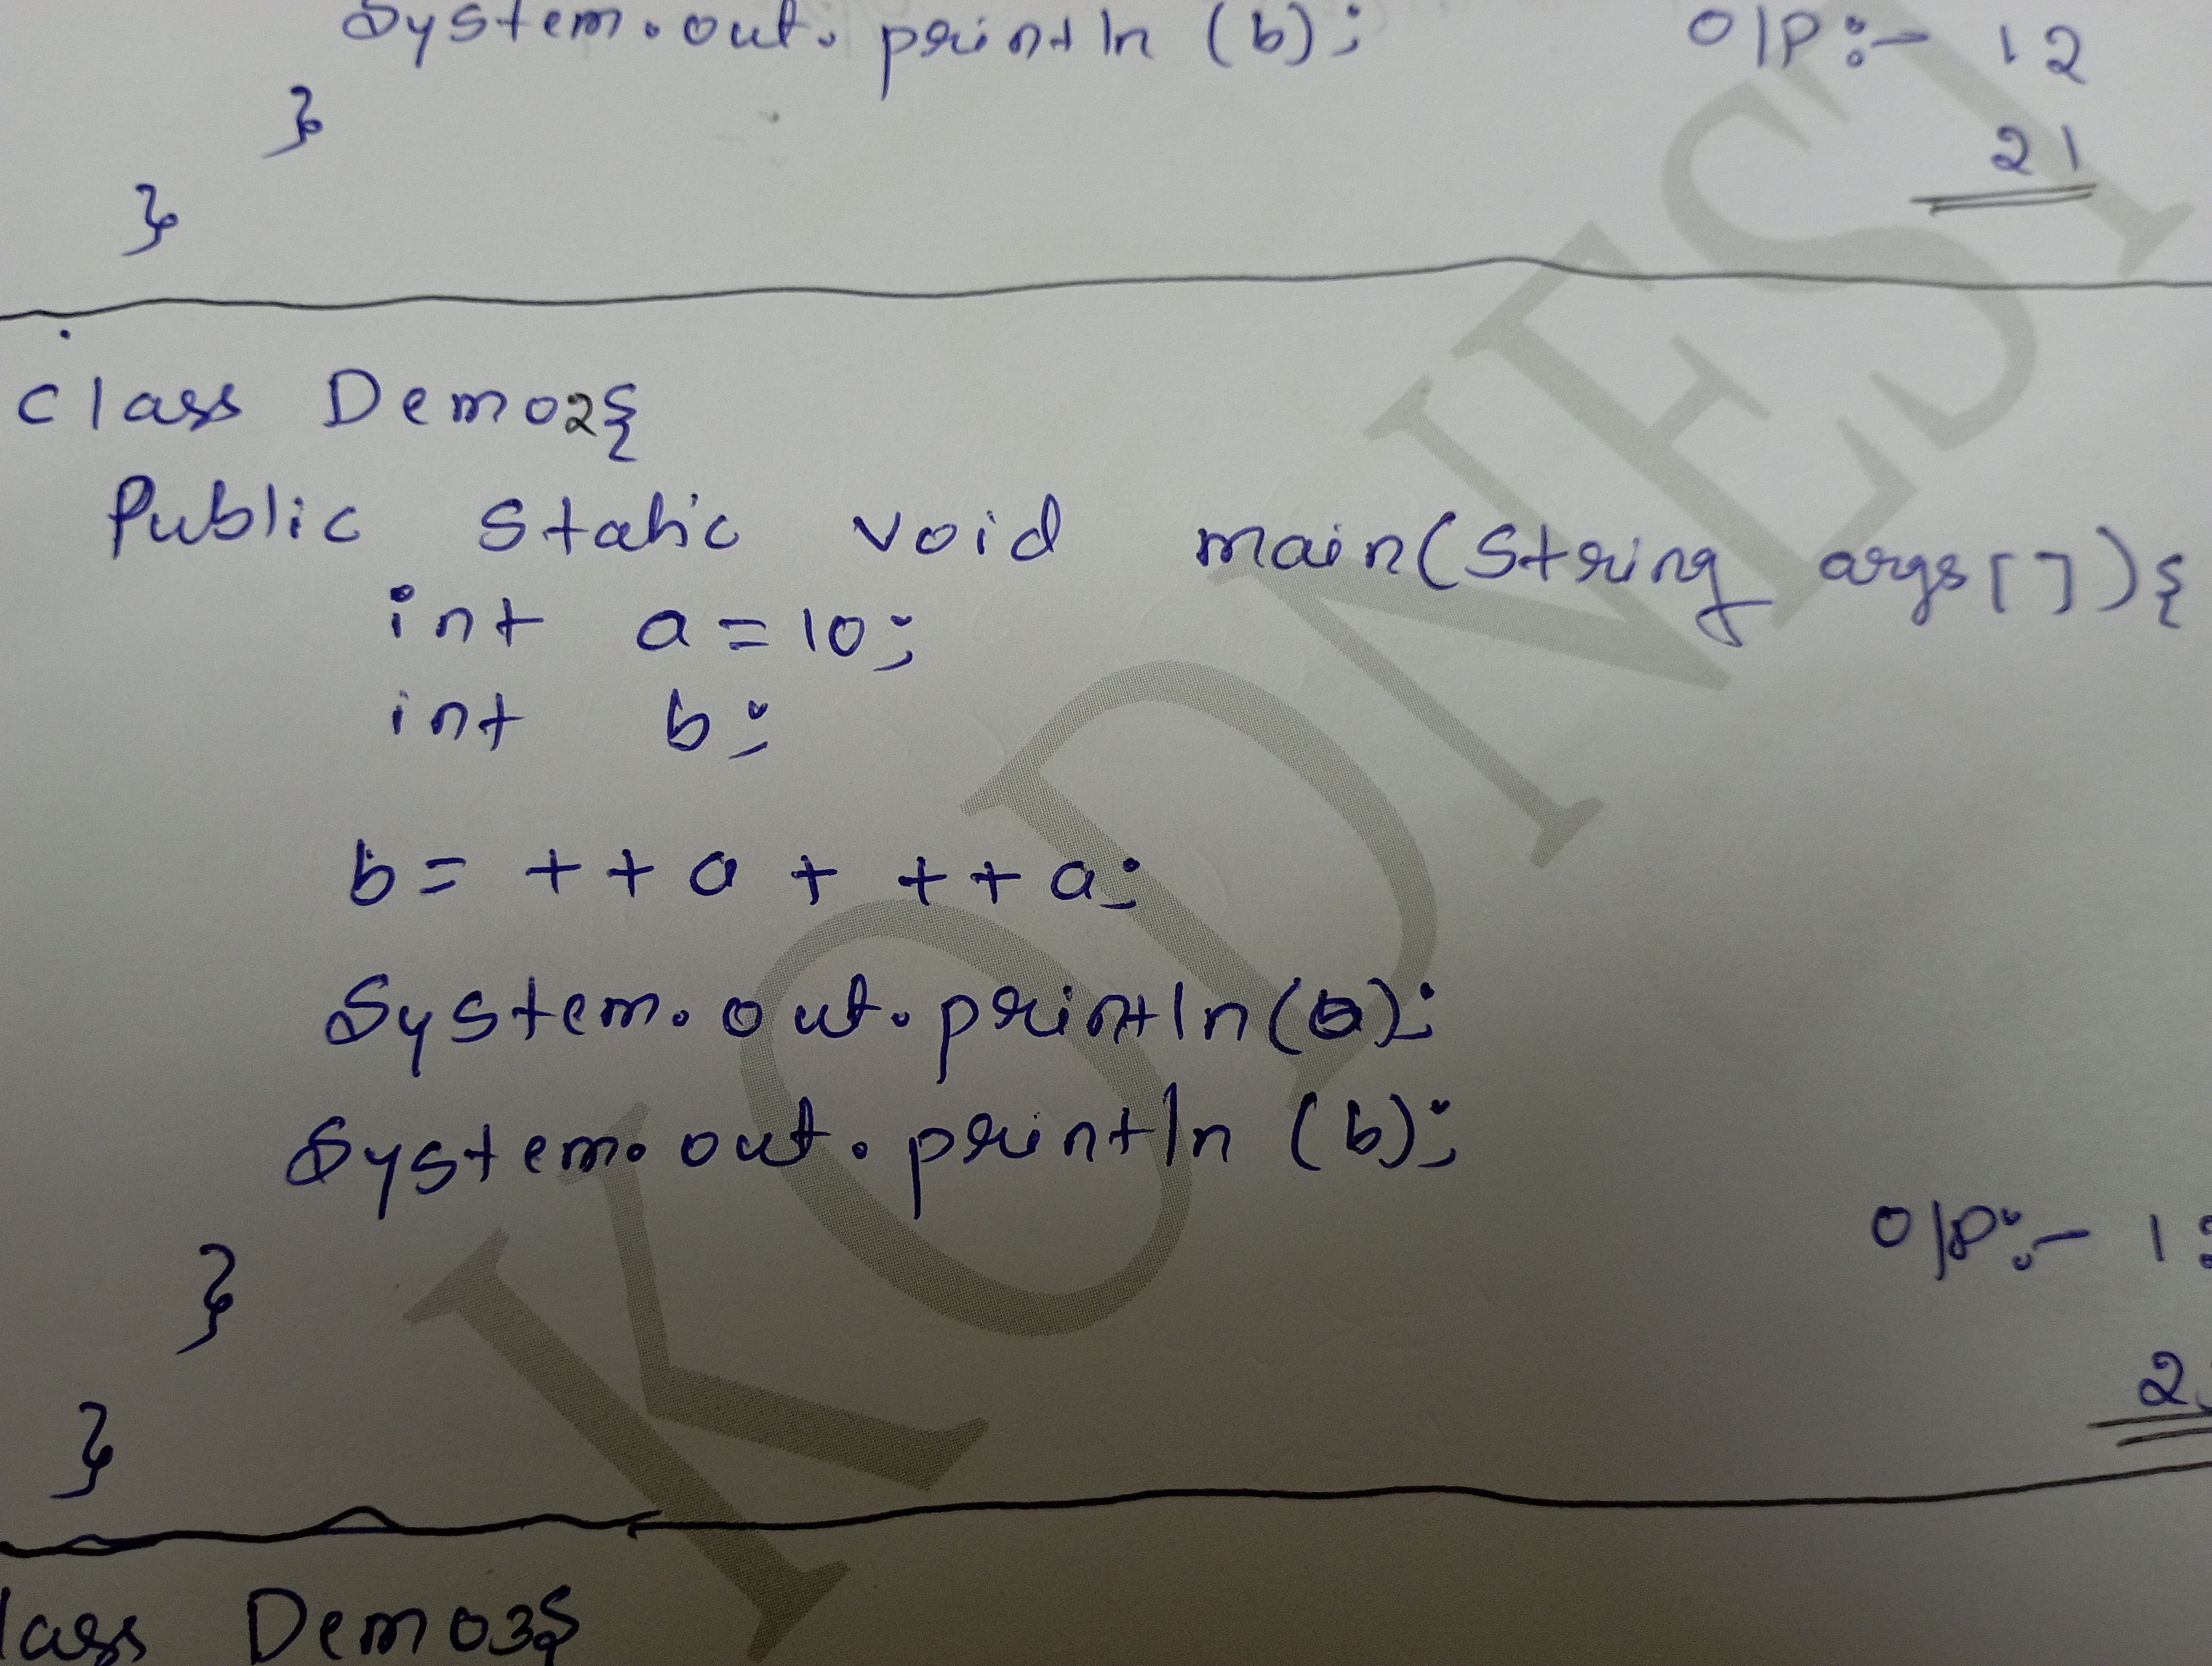 System.out.println (b);     O/P:- 12
}     21
}
class Demo2{
Public static void main(String args[]){
int a=10;
int b;
b= ++a + ++a;
System.out.println(a);
System.out.println (b);
O/P:- 1
}
2
}
lass Demo3{
KODNEST